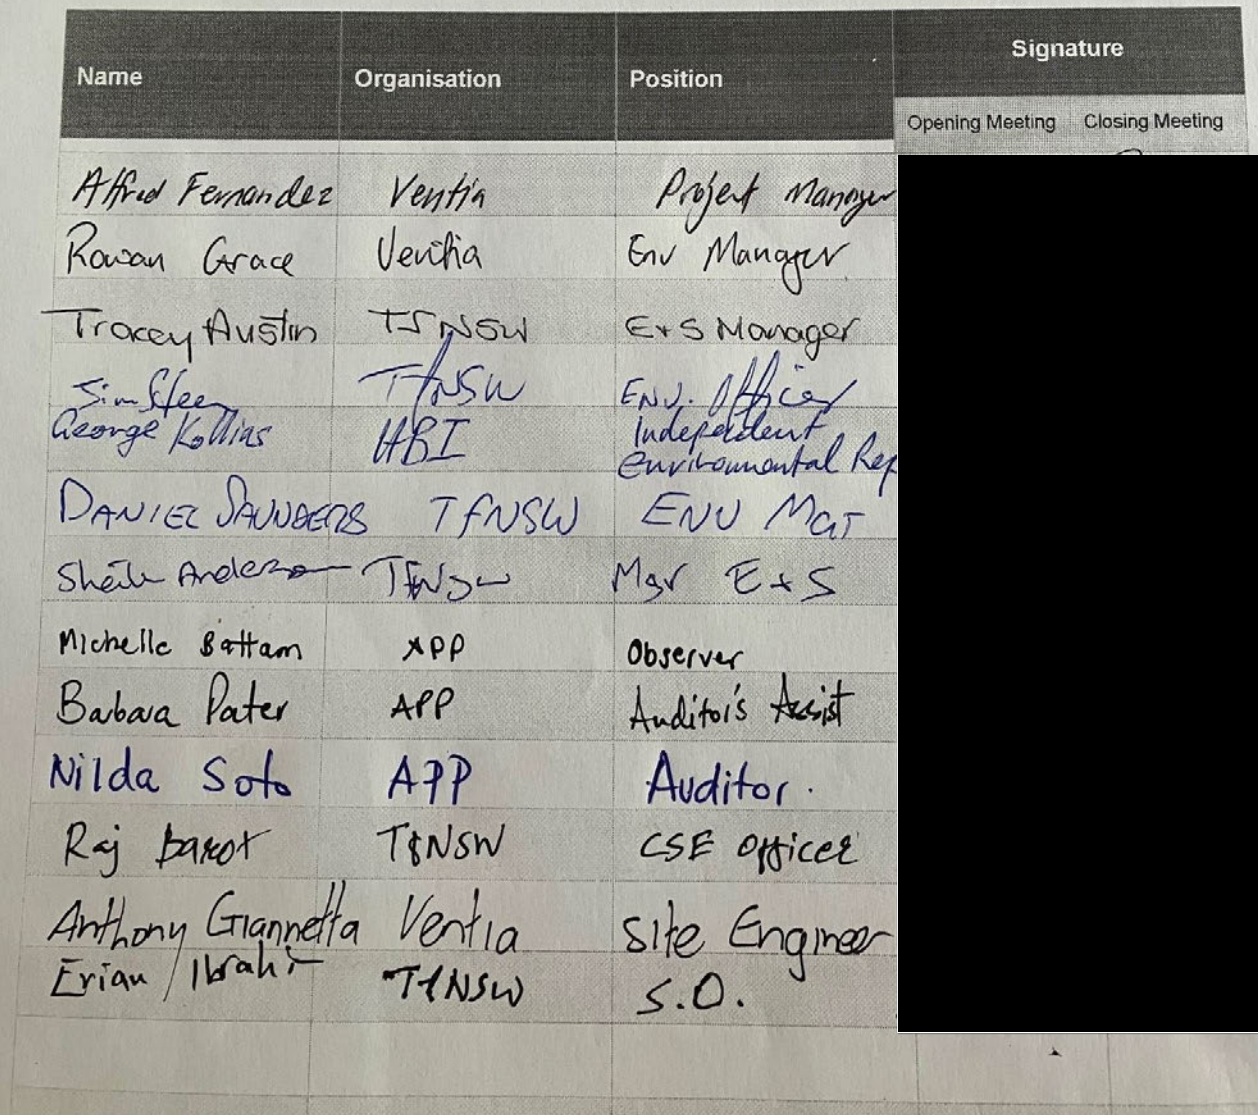 Signature
Name Organisation Position
Opening Meeting Closing Meeting
Alfred Fernandez Ventia Project Manager
Rowan Grace Ventia Env Manager
Tracey Austin TfNSW E+S Manager
TfNSW Env. Officer
George Kollias HBI Independent
Environmental Rep
DANIEL SAUNDERS TfNSW ENV MGT
Sheila Anderson TfNSW Mgr E+S
Michelle Battam APP Observer
Barbara Pater APP Auditor's Assist
Nilda Soto APP Auditor.
Raj Barot TfNSW CSE Officer
Anthony Giannetta Ventia Site Engineer
Erian / TfNSW S.O.